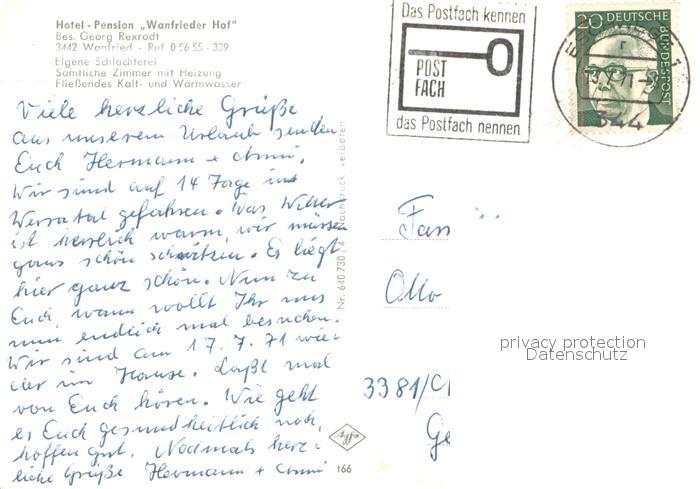 Hotel - Pension „Wanfrieder Hof"
Bes. Georg Rexrodt
3442 Wanfried - Ruf 0 56 55 - 339
Eigene Schlachterei
Sämtliche Zimmer mit Heizung
Fließendes Kalt- und Warmwasser
Das Postfach kennen
POST
FACH
das Postfach nennen
20 DEUTSCHE
BUNDESPOST
344
Viele herzliche Grüße
aus unserem Urlaub senden
Euch Hermann + Anni.
Wir sind auf 14 Tage ins
Werratal gefahren. Das Wetter
ist herrlich warm, wir müssen
ganz schön schwitzen. Es liegt
hier ganz schön. Nun zu
Euch, wann wollt Ihr uns
nun endlich mal besuchen.
Wir sind am 17. 7. 71 wie-
der im Hause. Laßt mal
von Euch hören. Wie geht
es Euch gesundheitlich noch,
hoffen gut. Nochmals herz-
liche Grüße Hermann + Anni
Nr. 640 730/4 Nachdruck verboten
166
Fam
Otto
3381/
Ge
privacy protection
Datenschutz